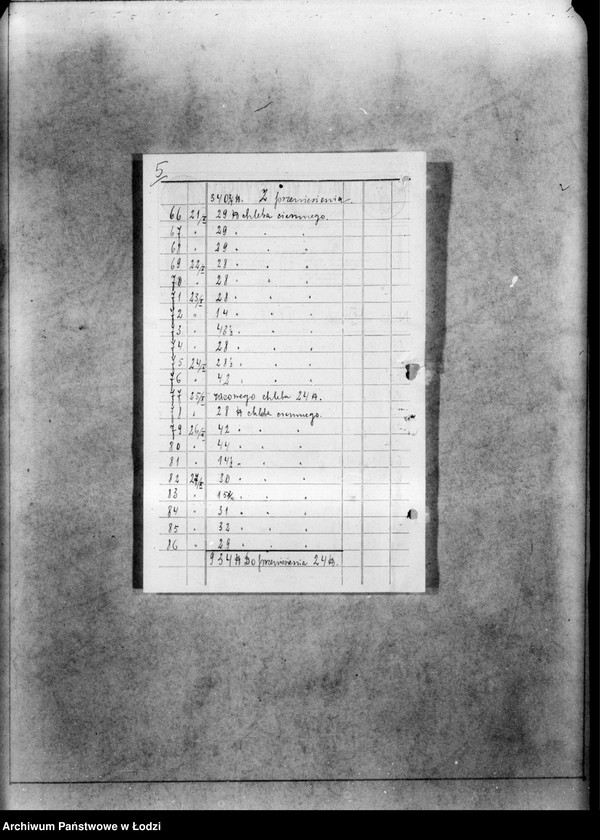 5
Z przeniesienia
66 21/X 29 ℔ chleba ciemnego.
67 " 29 " " "
68 " 29 " " "
69 22/X 28 " " "
70 " 28 " " "
71 23/X 28 " " "
72 " 14 " " "
73 "
74 " 28 " " "
75 24/X 28½ " " "
76 " 42 " " "
77 25/X razowego chleba 24 ℔.
78 " 28 ℔ chleba ciemnego.
79 26/X 42 " " "
80 " 44 " " "
81 " 14½ " " "
82 27/X 30 " " "
83 "
84 " 31 " " "
85 " 32 " " "
86 " 29 " " "
934 ℔ Do przeniesienia 24 ℔.
Archiwum Państwowe w Łodzi